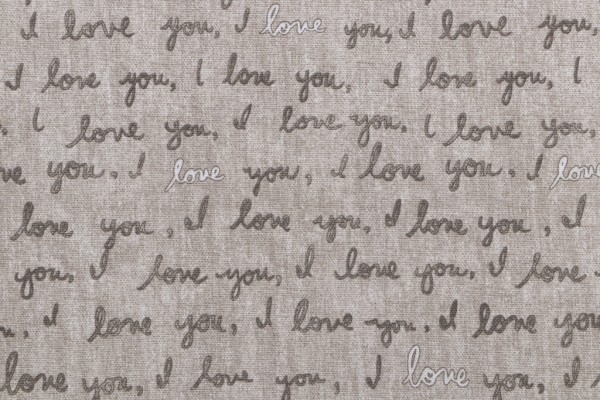 I love you, I love you, I love you,
I love you, I love you, I love you, I
I love you, I love you, I love you,
you. I love you, I love you. I love
love you, I love you, I love you, I
you, I love you, I love you, I love
I love you, I love you, I love you
love you, I love you, I love you, I